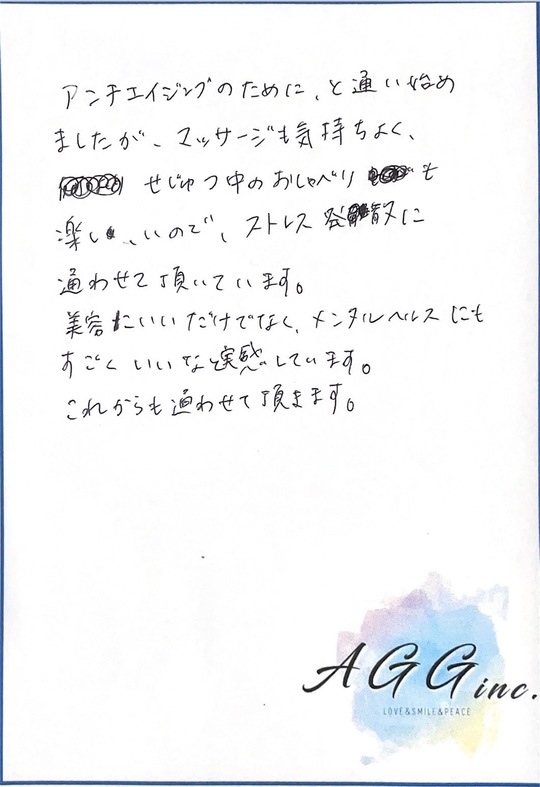 アンチエイジングのために、と通い始め
ましたが、マッサージも気持ちよく、
せじゅつ中のおしゃべりも
楽しいので、ストレス発散に
通わせて頂いています。
美容にいいだけでなく、メンタルヘルスにも
すごくいいなと実感しています。
これからも通わせて頂きます。
AGG inc.
LOVE&SMILE&PEACE